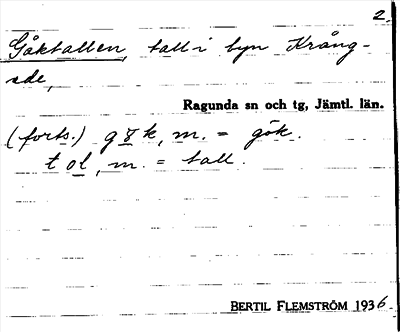 2.
Göktallen, tall i byn Krång-
ede,
Ragunda sn och tg, Jämtl. län.
(forts.) g k, m. = gök.
t ol, m. = tall.
BERTIL FLEMSTRÖM 1936.